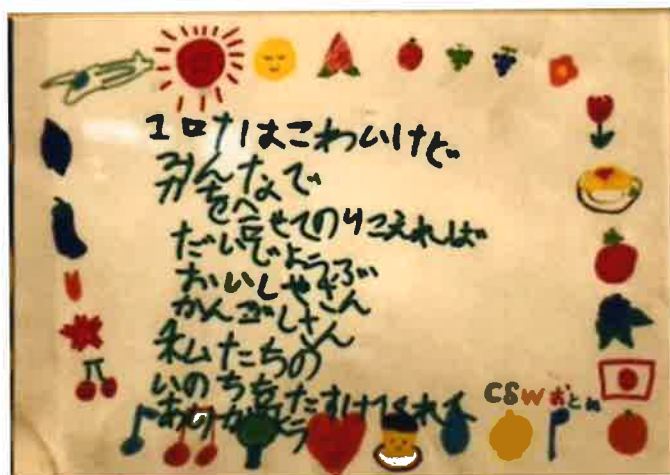 コロナはこわいけど
みんなで
力を合せてのりこえれば
だいじょうぶ
おいしゃさん
かんごしさん
私たちの
いのちをたすけてくれて
ありがとう
CSW